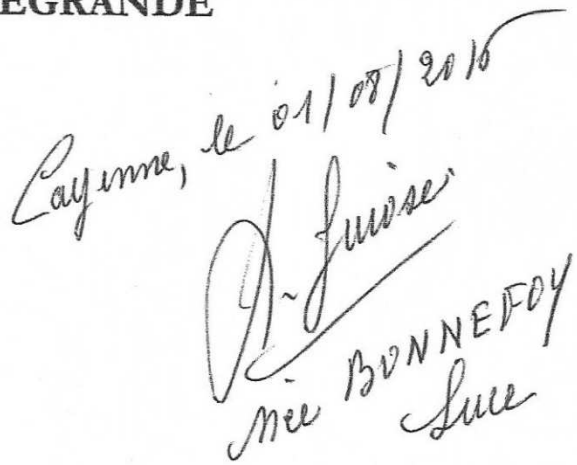 EGRANDE
Cayenne, le 01/08/2015
née BONNEFOY
Luce